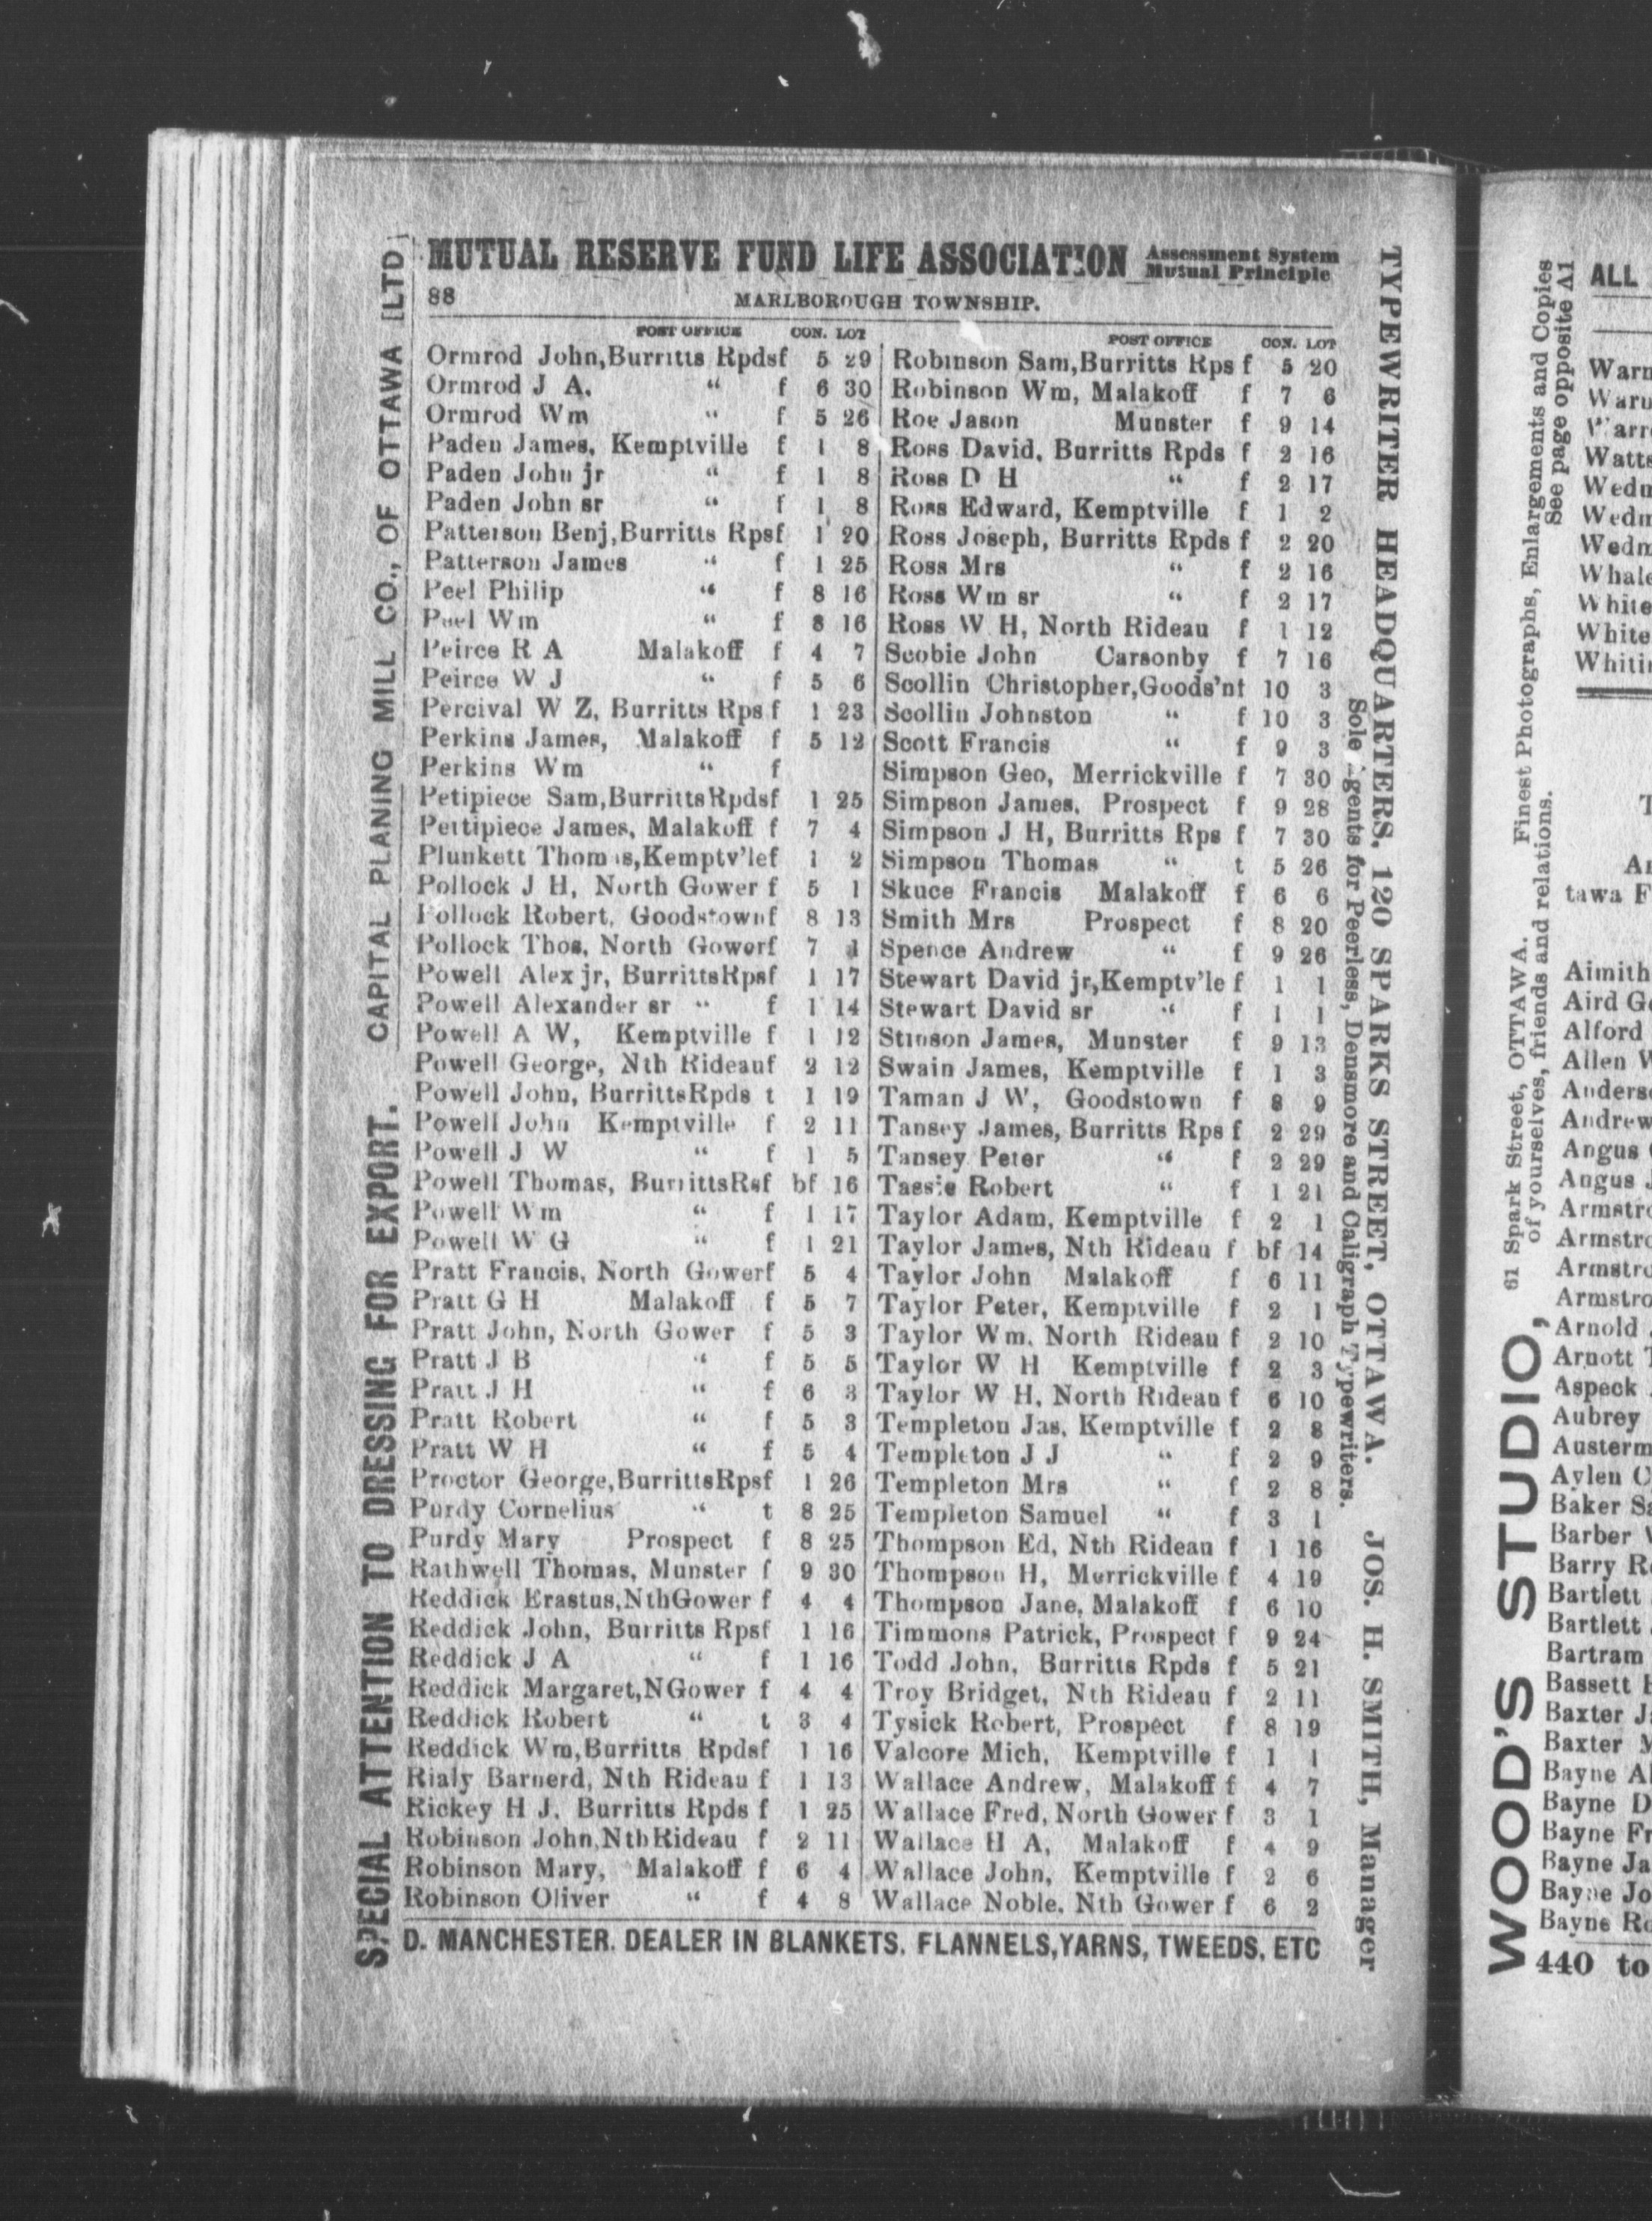 MUTUAL RESERVE FUND LIFE ASSOCIATION Assessment System Mutual Principle
88 MARLBOROUGH TOWNSHIP.
POST OFFICE CON. LOT
Ormrod John,Burritts Rpdsf 5 29
Ormrod J A. “ f 6 30
Ormrod Wm “ f 5 26
Paden James, Kemptville f 1 8
Paden John jr “ f 1 8
Paden John sr “ f 1 8
Patterson Benj,Burritts Rpsf 1 20
Patterson James “ f 1 25
Peel Philip “ f 8 16
Peel Wm “ f 8 16
Peirce R A Malakoff f 4 7
Peirce W J “ f 5 6
Percival W Z, Burritts Rps f 1 23
Perkins James, Malakoff f 5 12
Perkins Wm “ f
Petipiece Sam,BurrittsRpdsf 1 25
Pettipiece James, Malakoff f 7 4
Plunkett Thomas,Kemptv'lef 1 2
Pollock J H, North Gower f 5 1
Pollock Robert, Goodstownf 8 13
Pollock Thos, North Gowerf 7 1
Powell Alex jr, BurrittsRpsf 1 17
Powell Alexander sr “ f 1 14
Powell A W, Kemptville f 1 12
Powell George, Nth Rideauf 2 12
Powell John, BurrittsRpds t 1 19
Powell John Kemptville f 2 11
Powell J W “ f 1 5
Powell Thomas, BurrittsRsf bf 16
Powell Wm “ f 1 17
Powell W G “ f 1 21
Pratt Francis, North Gowerf 5 4
Pratt G H Malakoff f 5 7
Pratt John, North Gower f 5 3
Pratt J B “ f 5 5
Pratt J H “ f 6 3
Pratt Robert “ f 5 3
Pratt W H “ f 5 4
Proctor George,BurrittsRpsf 1 26
Purdy Cornelius “ t 8 25
Purdy Mary Prospect f 8 25
Rathwell Thomas, Munster f 9 30
Reddick Erastus,NthGower f 4 4
Reddick John, Burritts Rpsf 1 16
Reddick J A “ f 1 16
Reddick Margaret,NGower f 4 4
Reddick Robert “ t 3 4
Reddick Wm,Burritts Rpdsf 1 16
Rialy Barnerd, Nth Rideau f 1 13
Rickey H J, Burritts Rpds f 1 25
Robinson John,NthRideau f 2 11
Robinson Mary, Malakoff f 6 4
Robinson Oliver “ f 4 8
POST OFFICE CON. LOT
Robinson Sam,Burritts Rps f 5 20
Robinson Wm, Malakoff f 7 6
Roe Jason Munster f 9 14
Ross David, Burritts Rpds f 2 16
Ross D H “ f 2 17
Ross Edward, Kemptville f 1 2
Ross Joseph, Burritts Rpds f 2 20
Ross Mrs “ f 2 16
Ross Wm sr “ f 2 17
Ross W H, North Rideau f 1 12
Scobie John Carsonby f 7 16
Scollin Christopher,Goods'nt 10 3
Scollin Johnston “ f 10 3
Scott Francis “ f 9 3
Simpson Geo, Merrickville f 7 30
Simpson James, Prospect f 9 28
Simpson J H, Burritts Rps f 7 30
Simpson Thomas “ t 5 26
Skuce Francis Malakoff f 6 6
Smith Mrs Prospect f 8 20
Spence Andrew “ f 9 26
Stewart David jr,Kemptv'le f 1 1
Stewart David sr “ f 1 1
Stinson James, Munster f 9 13
Swain James, Kemptville f 1 3
Taman J W, Goodstown f 8 9
Tansey James, Burritts Rps f 2 29
Tansey Peter “ f 2 29
Tassie Robert “ f 1 21
Taylor Adam, Kemptville f 2 1
Taylor James, Nth Rideau f bf 14
Taylor John Malakoff f 6 11
Taylor Peter, Kemptville f 2 1
Taylor Wm, North Rideau f 2 10
Taylor W H Kemptville f 2 3
Taylor W H, North Rideau f 6 10
Templeton Jas, Kemptville f 2 8
Templeton J J “ f 2 9
Templeton Mrs “ f 2 8
Templeton Samuel “ f 3 1
Thompson Ed, Nth Rideau f 1 16
Thompson H, Merrickville f 4 19
Thompson Jane, Malakoff f 6 10
Timmons Patrick, Prospect f 9 24
Todd John, Burritts Rpds f 5 21
Troy Bridget, Nth Rideau f 2 11
Tysick Robert, Prospect f 8 19
Valcore Mich, Kemptville f 1 1
Wallace Andrew, Malakoff f 4 7
Wallace Fred, North Gower f 3 1
Wallace H A, Malakoff f 4 9
Wallace John, Kemptville f 2 6
Wallace Noble, Nth Gower f 6 2
D. MANCHESTER. DEALER IN BLANKETS. FLANNELS,YARNS, TWEEDS, ETC
SPECIAL ATTENTION TO DRESSING FOR EXPORT. CAPITAL PLANING MILL CO., OF OTTAWA [LTD]
TYPEWRITER HEADQUARTERS, 120 SPARKS STREET, OTTAWA. JOS. H. SMITH, Manager
Sole Agents for Peerless, Densmore and Caligraph Typewriters.
WOOD'S STUDIO, 61 Spark Street, OTTAWA. Finest Photographs, Enlargements and Copies
of yourselves, friends and relations. See page opposite A1
ALL
Warn
Warn
Warr
Watts
Wedm
Wedm
Wedm
Whale
White
White
Whitin
tawa F
Aimith
Aird Ge
Alford
Allen W
Anders
Andrew
Angus
Angus J
Armstro
Armstro
Armstro
Armstro
Arnold
Arnott T
Aspeck
Aubrey
Austerm
Aylen C
Baker Sa
Barber W
Barry R
Bartlett
Bartlett
Bartram
Bassett
Baxter J
Baxter M
Bayne Al
Bayne D
Bayne Fr
Bayne Ja
Bayne Jo
Bayne Ro
440 to